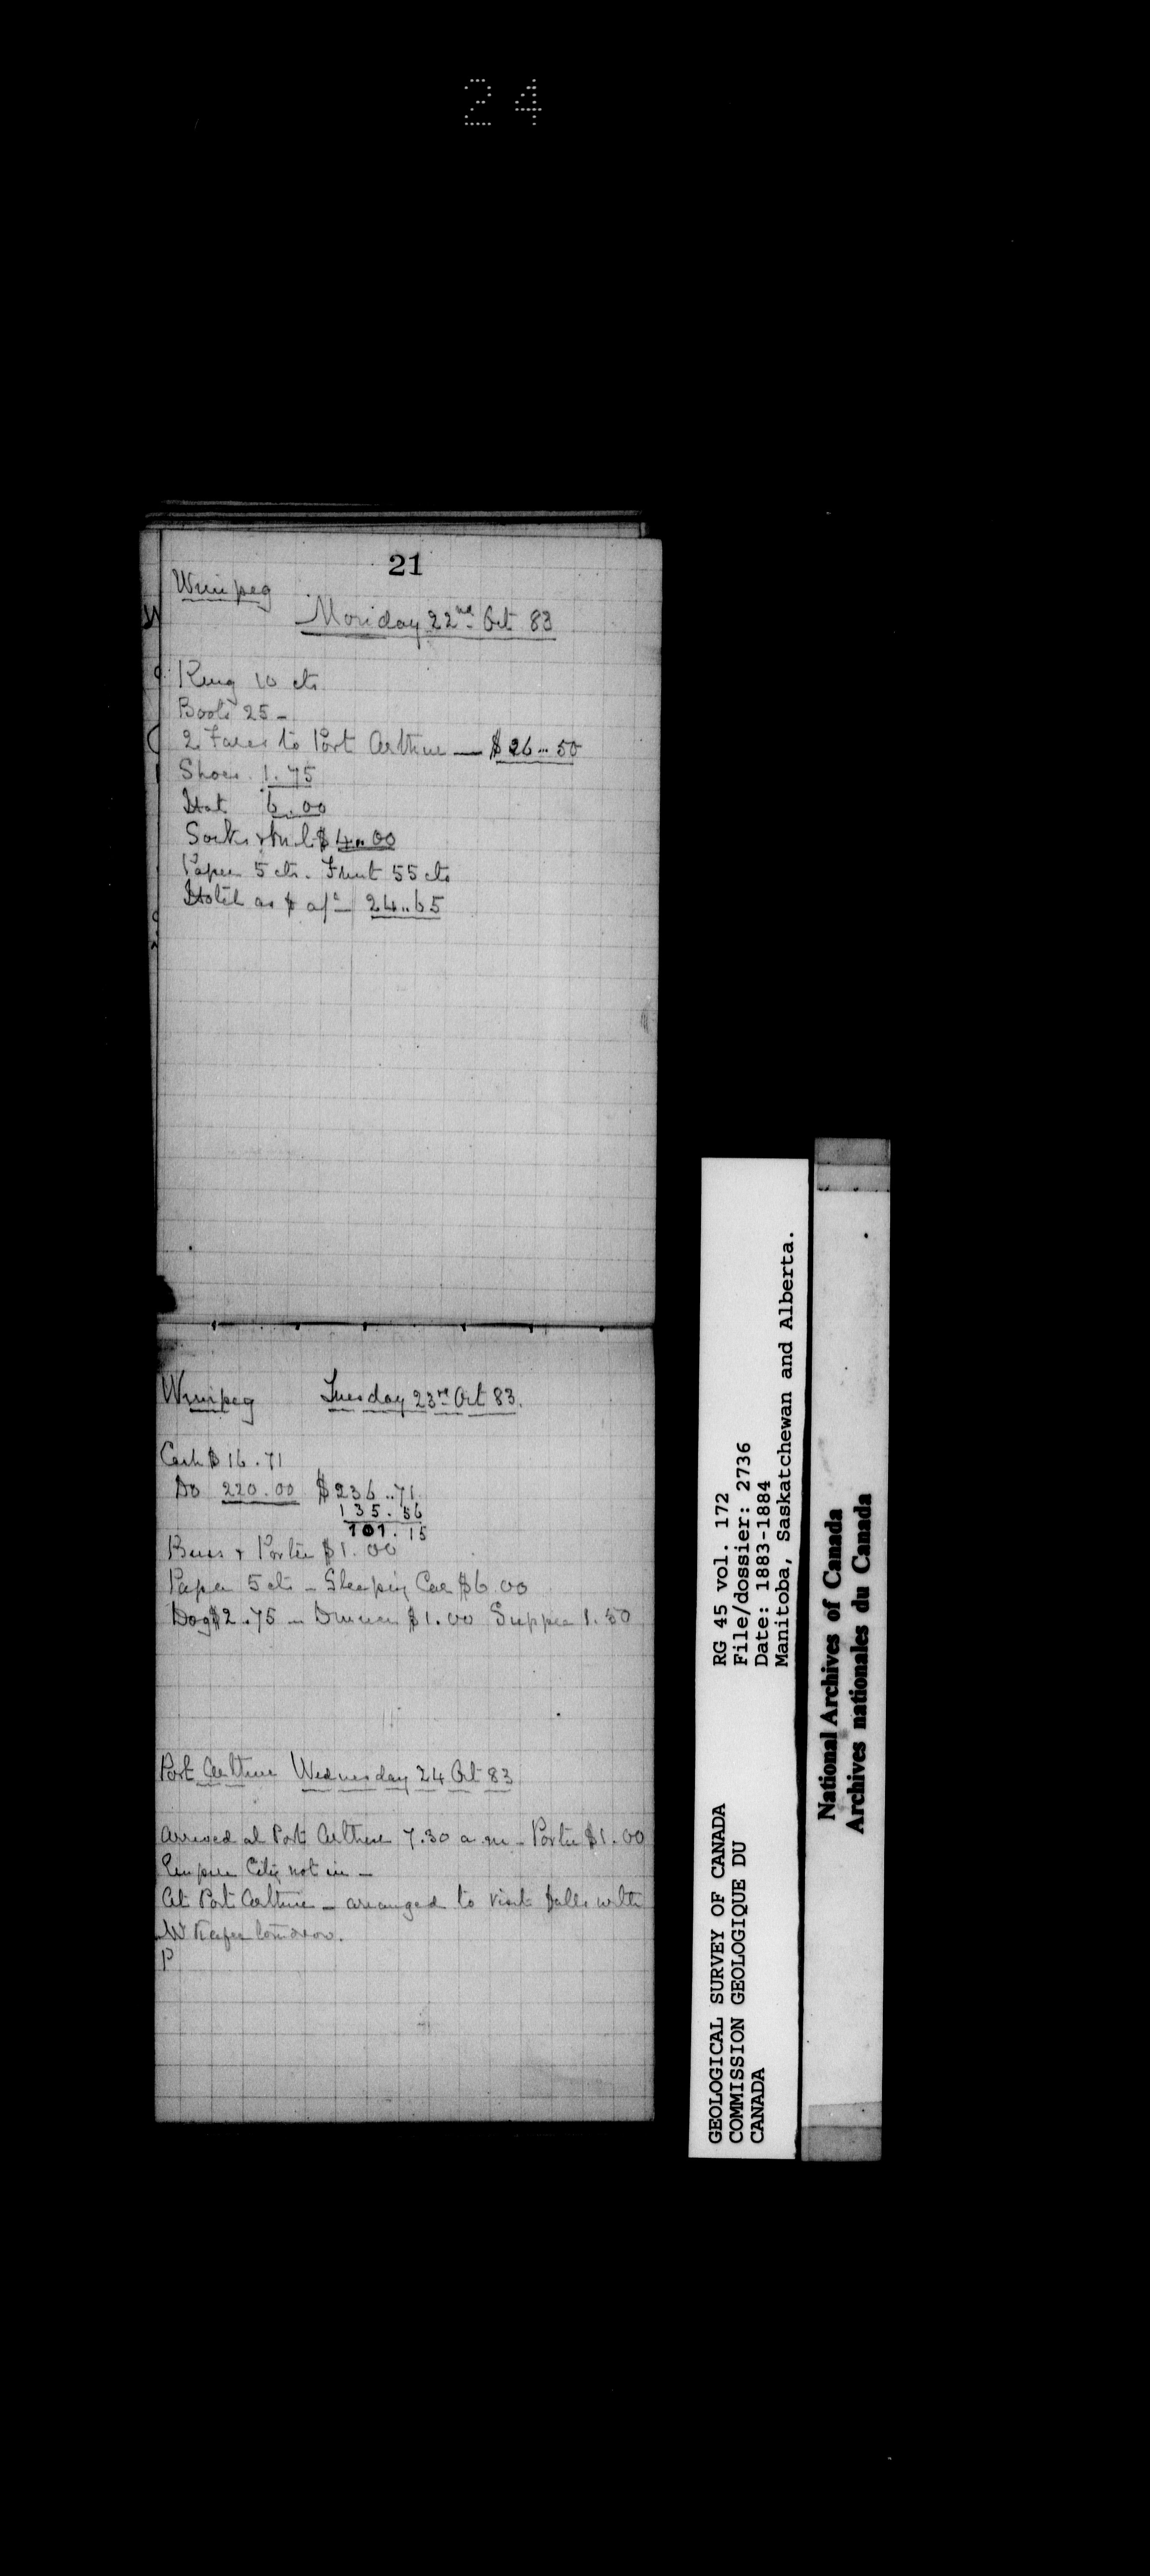 24
21
Winnipeg
Monday 22nd Oct 83
Ring 10 cts
Boots 25 -
2 Fares to Port Arthur — $ 26..50
Shoes 1.75
Hat 6.00
Socks & $ 4..00
Paper 5 cts. Fruit 55 cts
Hotel as p a/c - 24..65
Winnipeg Tuesday 23rd Oct 83.
Cash $ 16.71
Do 220.00 $ 236..71
135.56
101.15
Buss & Porter $1.00
Paper 5 cts - Sleeping Car $6.00
Dog $2.75 - Dinner $1.00 Supper 1.50
Port Arthur Wednesday 24 Oct 83
Arrived at Port Arthur 7.30 a.m - Porter $1.00
Empire City not in -
At Port Arthur - arranged to visit falls with
tomorrow.
P
RG 45 vol. 172
File/dossier: 2736
Date: 1883-1884
Manitoba, Saskatchewan and Alberta.
GEOLOGICAL SURVEY OF CANADA
COMMISSION GEOLOGIQUE DU
CANADA
National Archives of Canada
Archives nationales du Canada